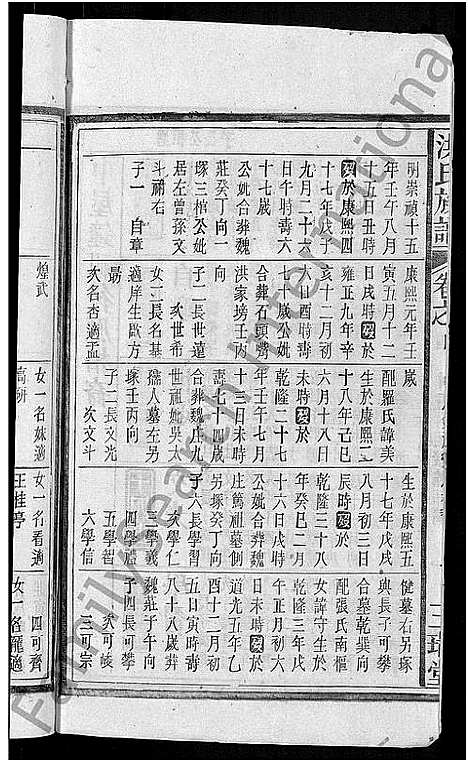 洪氏族譜
明崇禎十五
年壬午八月
十五日丑時
歿於康熙四
十七年戊子
九月二十六
日午時壽六
十七歲
公妣合葬魏
莊癸丁向一
塚三棺公妣
居左曾孫文
斗祔右
子一 自章
康熙元年王
寅五月十二
日戌時歿於
雍正九年辛
亥十二月初
六日酉時壽
七十歲公妣
合葬石頭齊
洪家塝壬丙
向
子二長世遠
女二長名基
適庠生歐方
勗
次名杏適孟
煌武
歲
配羅氏諱美
生於康熙二
十八年己巳
六月十八日
未時歿於
乾隆二十七
年壬午七月
十三日未時
壽七十四歲
合葬魏莊九
世祖妣吳太
孺人墓左另
塚壬丙向
子二長文光
次文斗
女一名姝適
高朝
生於康熙五
十七年戊戌
八月初三日
辰時歿於
乾隆三十八
年癸巳二月
十六日戌時
公妣合葬魏
庄篤祖墓側
另塚癸丁向
子六長學習
次學仁
三學義
四學禮
五學智
六學信
女一名看適
王桂亭
健墓右另塚
與長子可攀
合墓乾巽向
配張氏南樞
女諱守生於
乾隆三年戊
午正月初六
日未時歿於
道光五年乙
酉十二月初
五日寅時壽
八十八歲葬
魏莊子午向
子四長可攀
次可峻
三可宗
四可齊
女一名龍適
三瑞堂